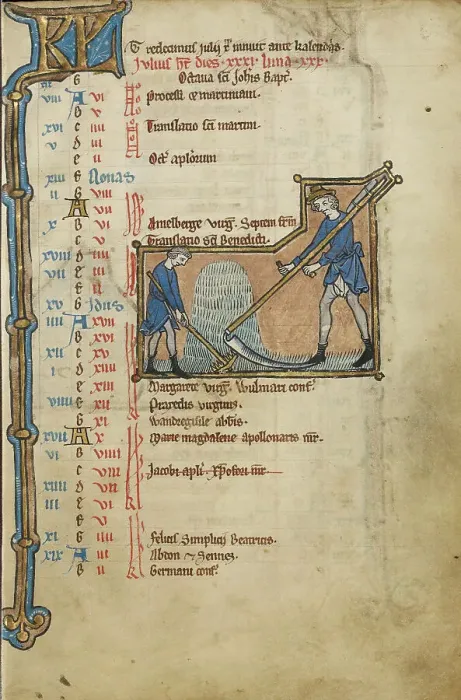 KL
Tredecimus julij & innuit ante kalendas.
Julius ht dies xxxi luna xxx.
G Octaua sci Johis Bapt.
viii A vi Processi & martiniani.
b v
xvi c iiii Translatio sci martini.
v d iii
e ii Oct' aptorum
xiii f Nonas
ii G viii
A vii
x b vi Amelberge virg. Septem frm
c v Translatio sci Benedicti.
xviii d iiii
vii e iii
f ii
xv G Idus
iiii A xvii
b xvi
xii c xv
i d xiiii
e xiii Margarete virg. Wulmari conf.
viiii f xii Praxedis virginis.
G xi Wandregisile abbis.
xvii A x Marie magdalene apollonaris mr.
vi b viiii
c viii Jacobi apli. Xpofori mr
xiiii d vii
iii e vi
f v
xi G iiii Felicis Simplicij Beatricis.
xix A iii Abdon & Sennes.
b ii Germani conf.